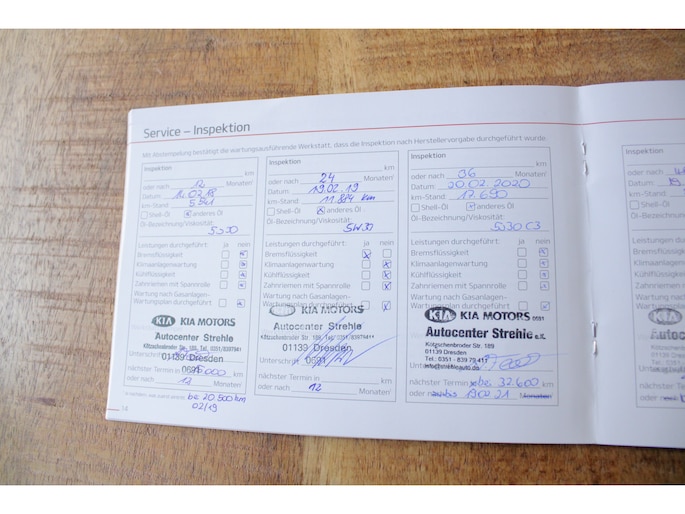 Service – Inspektion
Mit Abstempelung bestätigt die wartungsausführende Werkstatt, dass die Inspektion nach Herstellervorgabe durchgeführt wurde.
Inspektion
km
oder nach 12 Monaten
Datum
km-Stand
Shell-Öl anderes Öl
Öl-Bezeichnung/Viskosität:
Leistungen durchgeführt: ja nein
Bremsflüssigkeit
Klimaanlagenwartung
Kühlflüssigkeit
Zahnriemen mit Spannrolle
Wartung nach Gasanlagen-
Wartungsplan durchgeführt
KIA KIA MOTORS
Autocenter Strehle
Kötzschenbroder Str. 189, Tel. 0351/8397941
01139 Dresden
Unterschrift
nächster Termin in km
oder nach 12 Monaten
be 20 500 km
02/19
14
Inspektion
km
oder nach 24 Monaten
Datum 19.02.19
km-Stand 11.884 km
Shell-Öl anderes Öl
Öl-Bezeichnung/Viskosität:
5W30
Leistungen durchgeführt: ja nein
Bremsflüssigkeit
Klimaanlagenwartung
Kühlflüssigkeit
Zahnriemen mit Spannrolle
Wartung nach Gasanlagen-
Wartungsplan durchgeführt
KIA KIA MOTORS
Autocenter Strehle
01139 Dresden
Unterschrift 0691
nächster Termin in km
oder nach 12 Monaten
Inspektion
km
oder nach 36 Monaten
Datum 20.02.2020
km-Stand 17.690
Shell-Öl anderes Öl
Öl-Bezeichnung/Viskosität:
5W30 C3
Leistungen durchgeführt: ja nein
Bremsflüssigkeit
Klimaanlagenwartung
Kühlflüssigkeit
Zahnriemen mit Spannrolle
Wartung nach Gasanlagen-
Wartungsplan durchgeführt
KIA KIA MOTORS 0691
Autocenter Strehle e.K.
Kötzschenbroder Str. 189
01139 Dresden
Tel.: 0351 - 839 79 41
nächster Termin in 32.600 km
oder nach 19.02.21 Monaten
Inspektion
oder nach
Datum
km-Stand
Shell-Öl
Öl-Bezeichnung
Leistungen
Bremsflüssigkeit
Klimaanlagen
Kühlflüssigkeit
Zahnriemen
Wartung nach
Wartungsplan
KIA
Autocenter
Kötzschenbroder
nächster Termin
oder nach